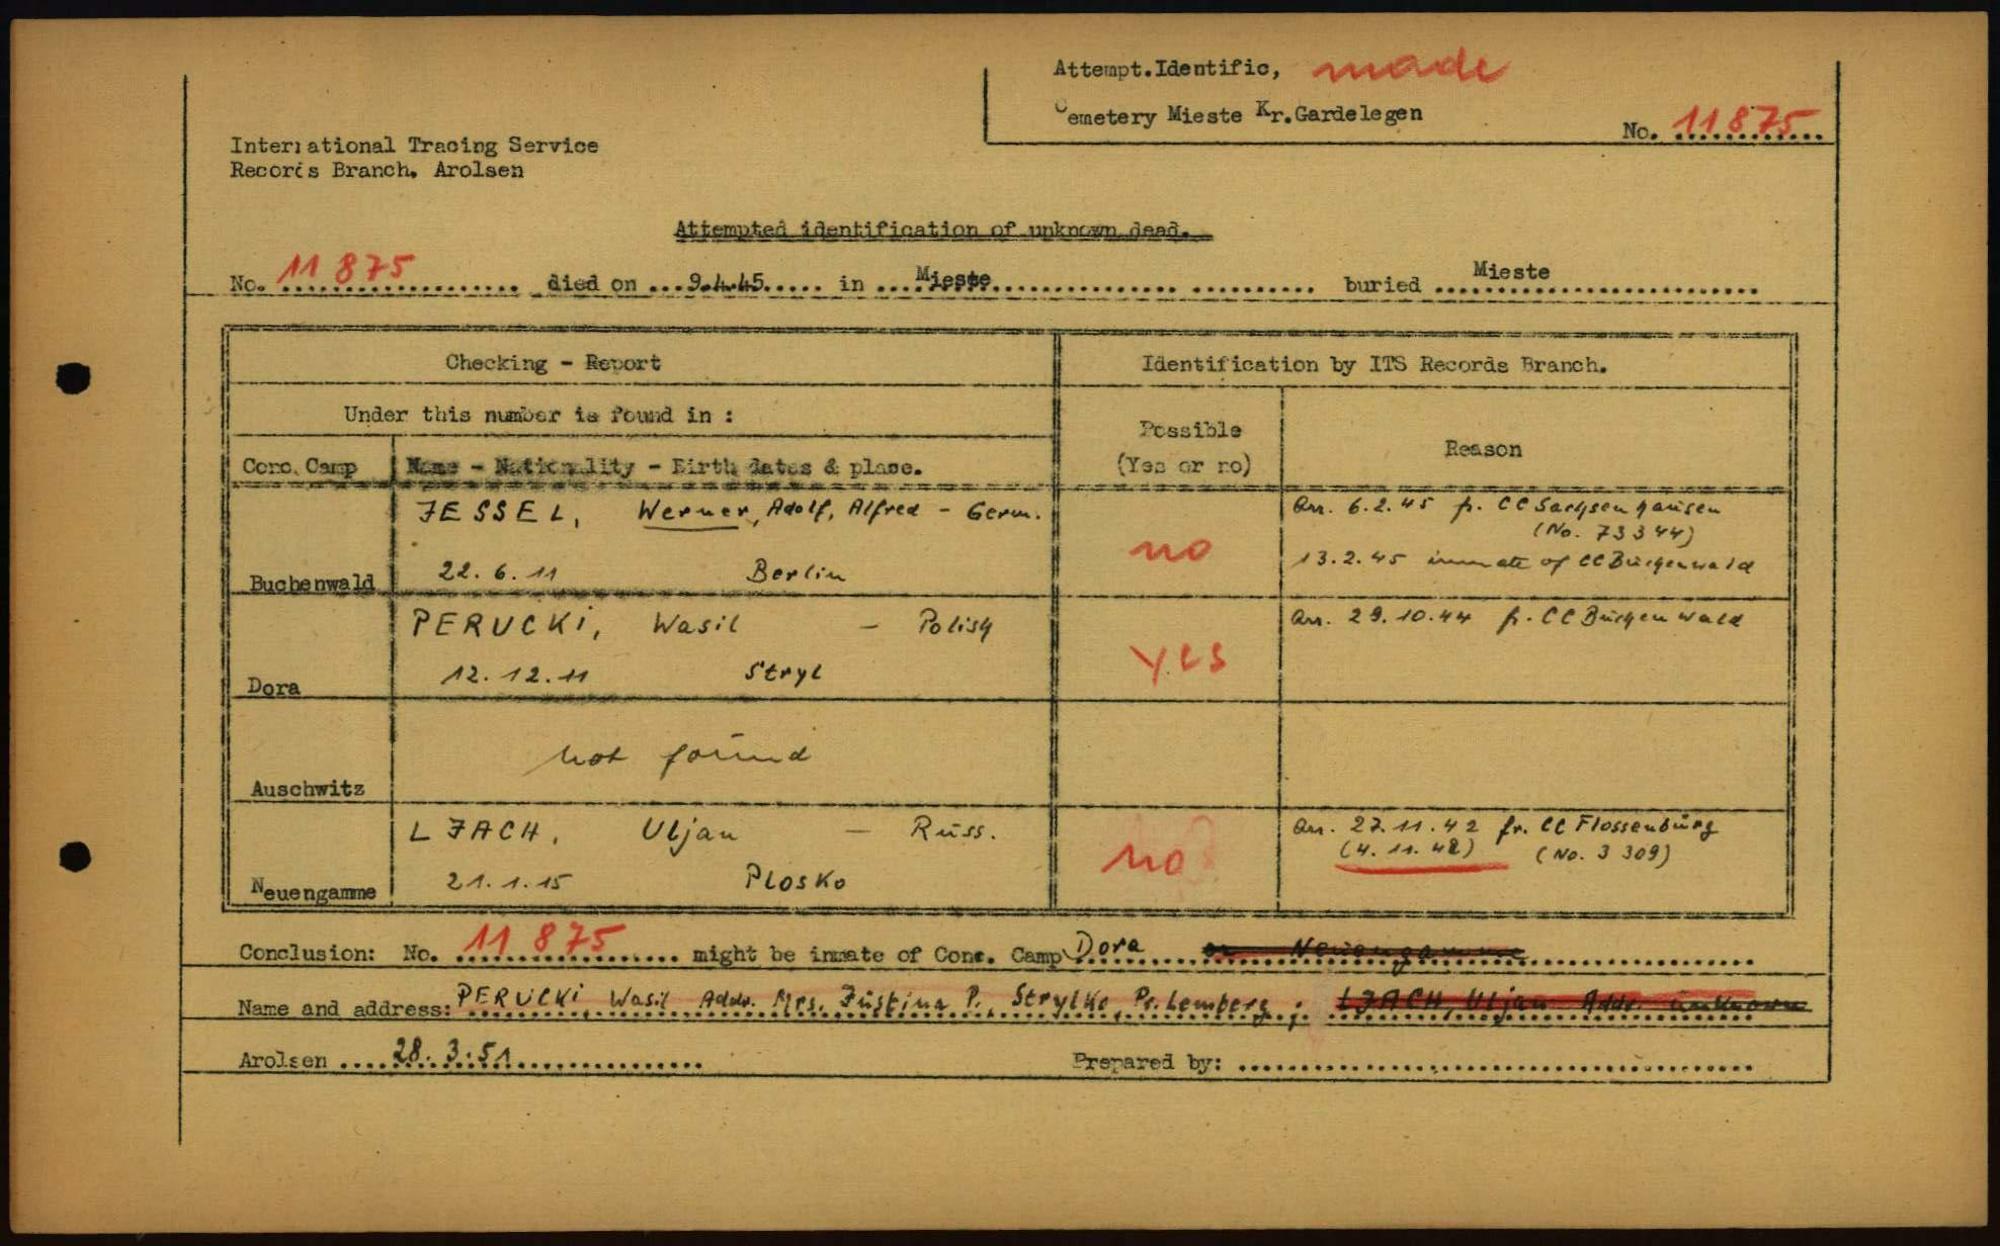 Attempt.Identific, made
Cemetery Mieste Kr.Gardelegen
No. 11875
International Tracing Service
Records Branch. Arolsen
Attempted identification of unknown dead.
No. 11 875 died on 9.4.45 in Mieste buried Mieste
Checking - Report
Identification by ITS Records Branch.
Under this number is found in :
Possible
(Yes or no)
Reason
Conc. Camp
Name - Nationality - Birth dates & place.
JESSEL, Werner, Adolf, Alfred - Germ.
22. 6. 11 Berlin
Buchenwald
no
Arr. 6.2.45 fr. CC Sachsenhausen
(No. 73344)
13.2.45 inmate of CC Buchenwald
PERUCKI, Wasil - Polish
12. 12. 11 Stryl
Dora
Yes
Arr. 29.10.44 fr. CC Buchenwald
not found
Auschwitz
LJACH, Uljan - Russ.
21. 1. 15 Plosko
Neuengamme
no
Arr. 27.11.42 fr. CC Flossenburg
(4. 11. 42) (No. 3 309)
Conclusion: No. 11 875 might be inmate of Conc. Camp Dora or Neuengamme
Name and address: PERUCKI, Wasil Addr. Mrs. Justina P., Strylke, Pr. Lemberg ; LJACH, Uljan Addr. unknown
Arolsen 28. 3. 51
Prepared by: